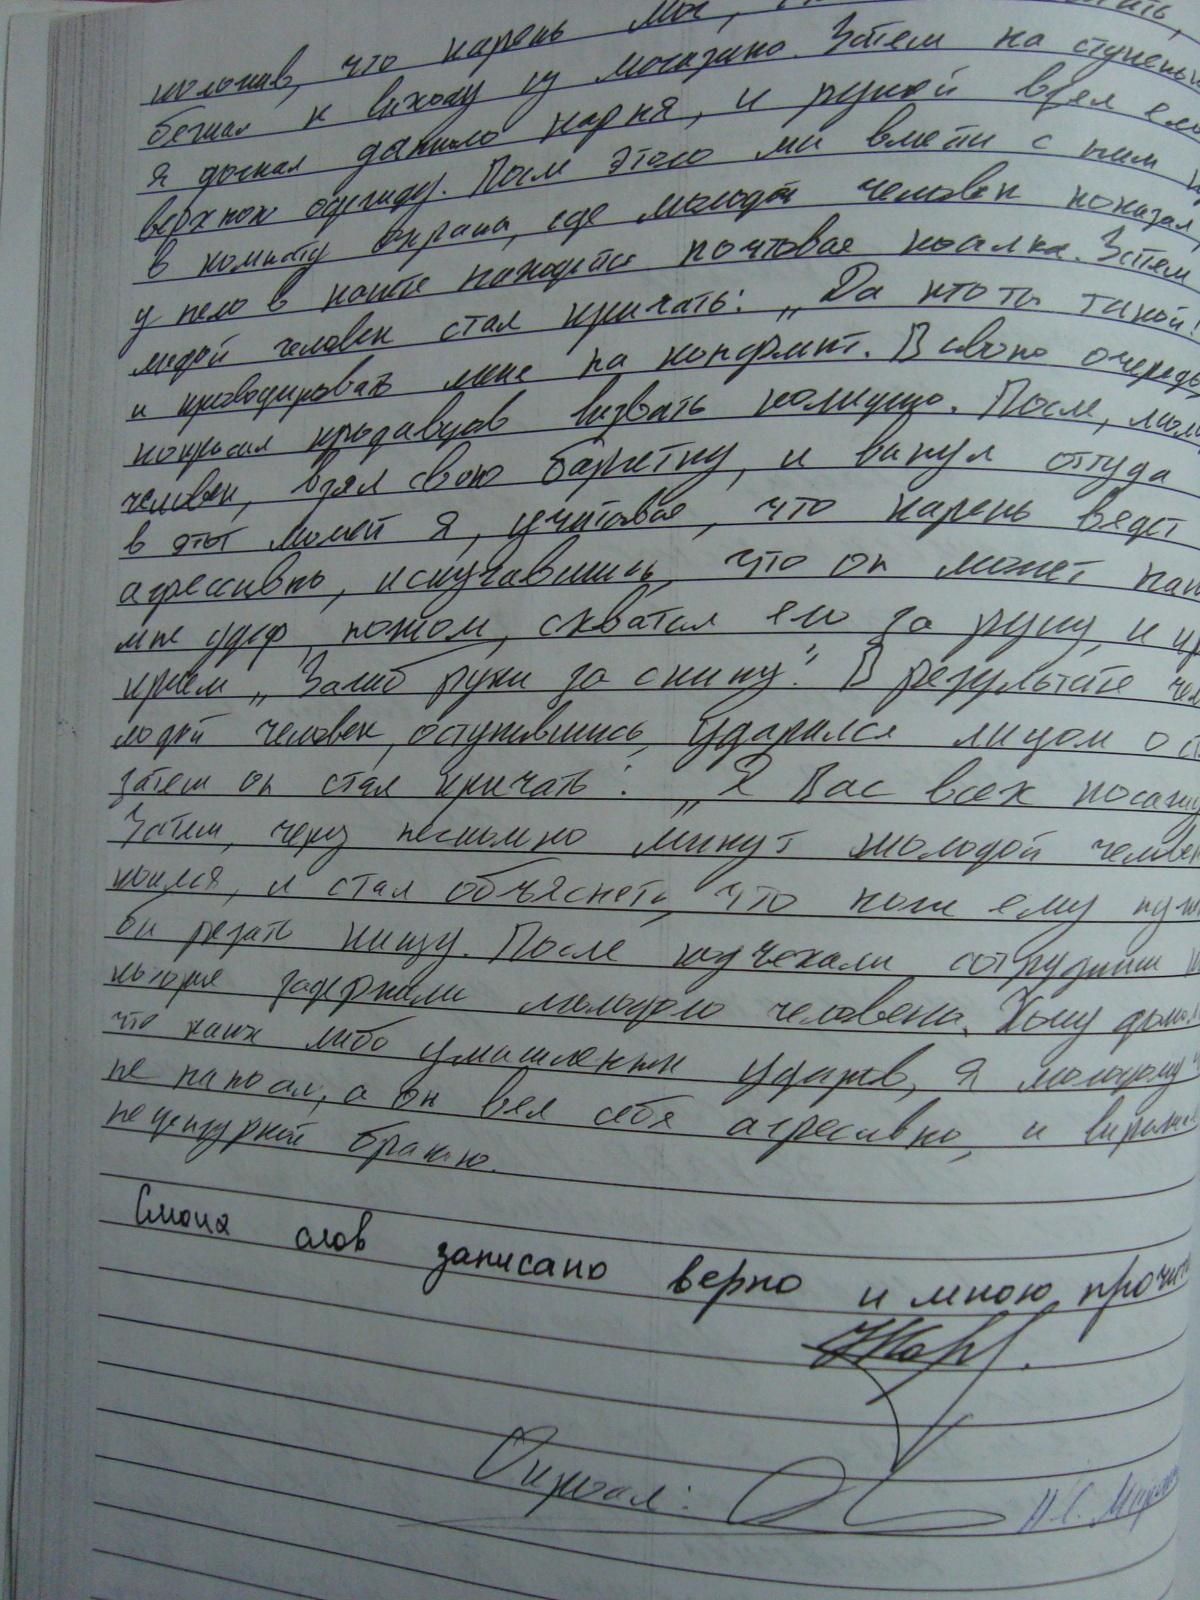 что парень мог,
бежал к выходу из магазина. Затем на ступеньк
я догнал данного парня, и рукой взял его
верхнюю одежду. После этого мы вместе с ним
в комнату охраны, где молодой человек показал,
у него в находится почтовая посылка. Затем
лодой человек стал кричать: „Да кто ты такой!
и провоцировать меня на конфликт. В свою очередь
попросил продавцов вызвать полицию. После, моло
человек, взял свою барсетку, и вынул оттуда
в этот момент я, учитывая, что парень ведет
агрессивно, испугавшись, что он может нан
мне удар ножом, схватил его за руку, и пр
прием „Загиб руки за спину". В результате чег
лодой человек, оступившись, ударился лицом о ст
затем он стал кричать: „Я Вас всех посажу
Затем, через несколько минут молодой человек
коился, и стал объяснять, что нож ему нуж
бы резать пиццу. После подъехали сотрудники п
которые задержали молодого человека. Хочу допол
что каких либо умышленных ударов, я молодому ч
не наносил, а он вел себя агресивно, и выражал
нецензурной бранью.
Смоих слов записано верно и мною прочита
Опросил: